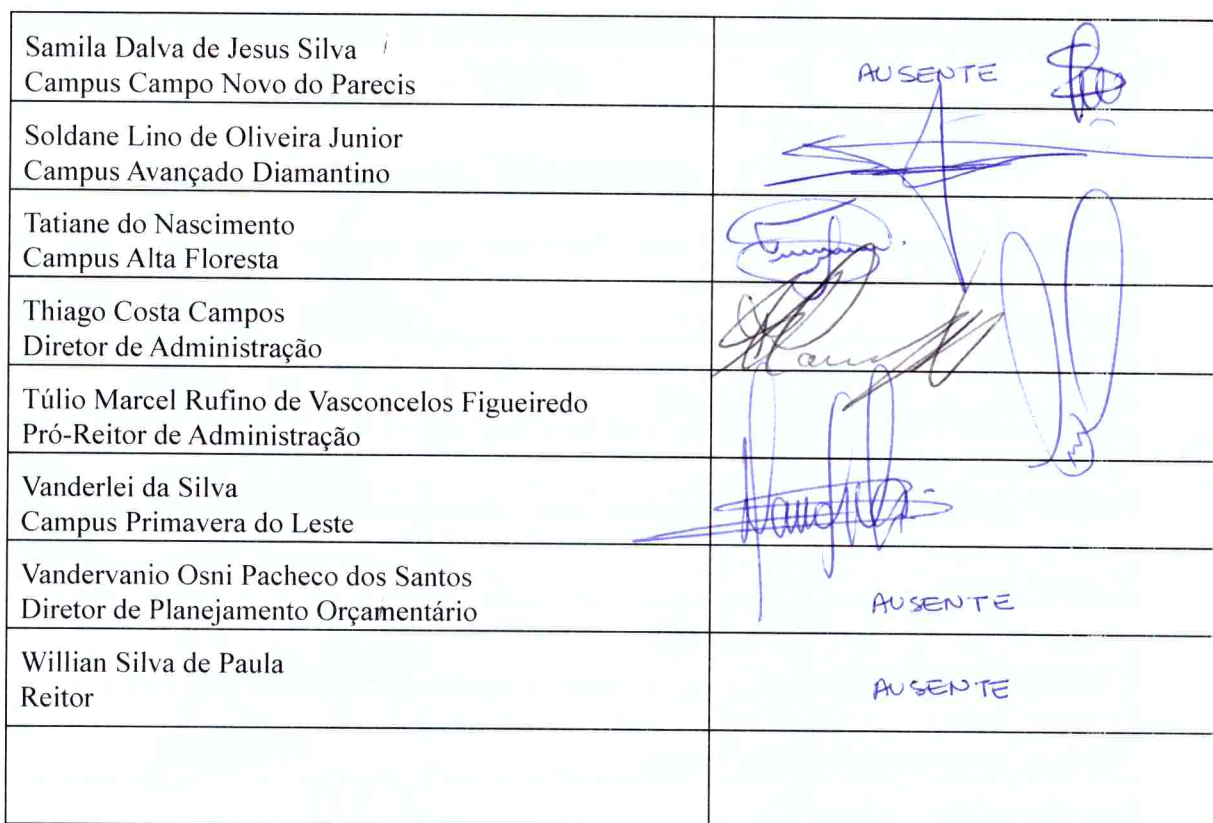 Samila Dalva de Jesus Silva
Campus Campo Novo do Parecis
AUSENTE
Soldane Lino de Oliveira Junior
Campus Avançado Diamantino
Tatiane do Nascimento
Campus Alta Floresta
Thiago Costa Campos
Diretor de Administração
Túlio Marcel Rufino de Vasconcelos Figueiredo
Pró-Reitor de Administração
Vanderlei da Silva
Campus Primavera do Leste
Vandervanio Osni Pacheco dos Santos
Diretor de Planejamento Orçamentário
AUSENTE
Willian Silva de Paula
Reitor
AUSENTE